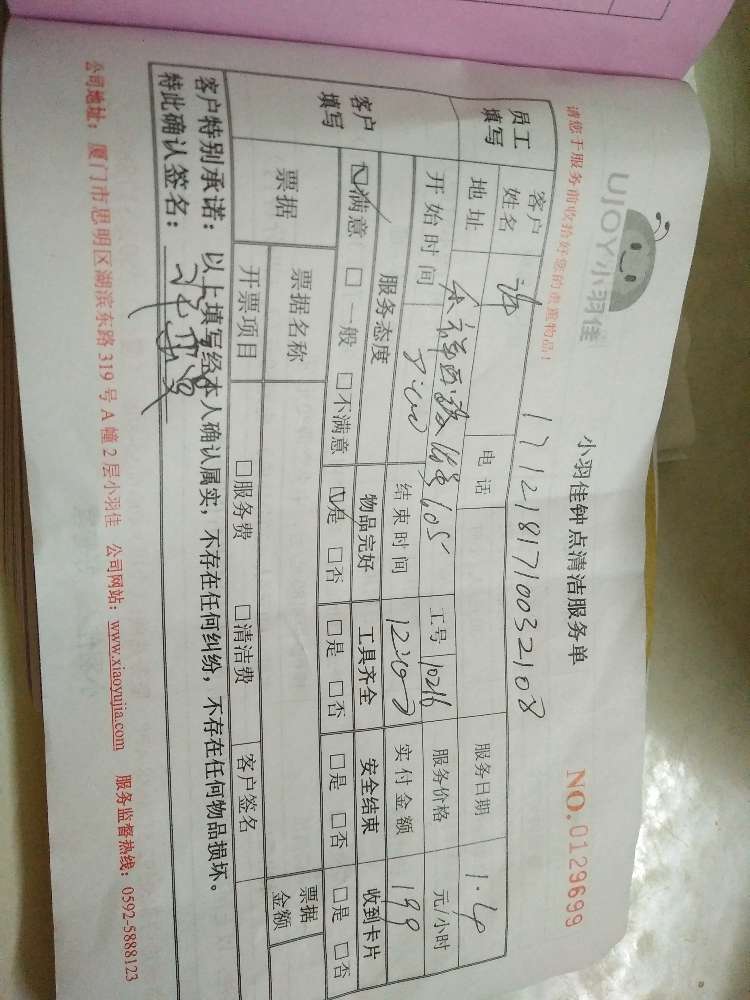 UJOY小羽佳
小羽佳钟点清洁服务单
NO.0129699
请您于服务前收拾好您的贵重物品!
1712181710032108
员工填写
客户姓名
电话
服务日期 1.4
地址 605
工号 10216
服务价格 元/小时
开始时间
结束时间 12:00
实付金额 199
客户填写
服务态度 物品完好 工具齐全 安全结束 收到卡片
☑满意 □一般 □不满意 ☑是 □否 □是 □否 □是 □否 □是 □否
票据
票据名称
票据金额
开票项目 □服务费 □清洁费 客户签名
客户特别承诺:以上填写经本人确认属实,不存在任何纠纷,不存在任何物品损坏。
特此确认签名:
公司地址:厦门市思明区湖滨东路319号A幢2层小羽佳 公司网站:www.xiaoyujia.com 服务监督热线:0592-5888123